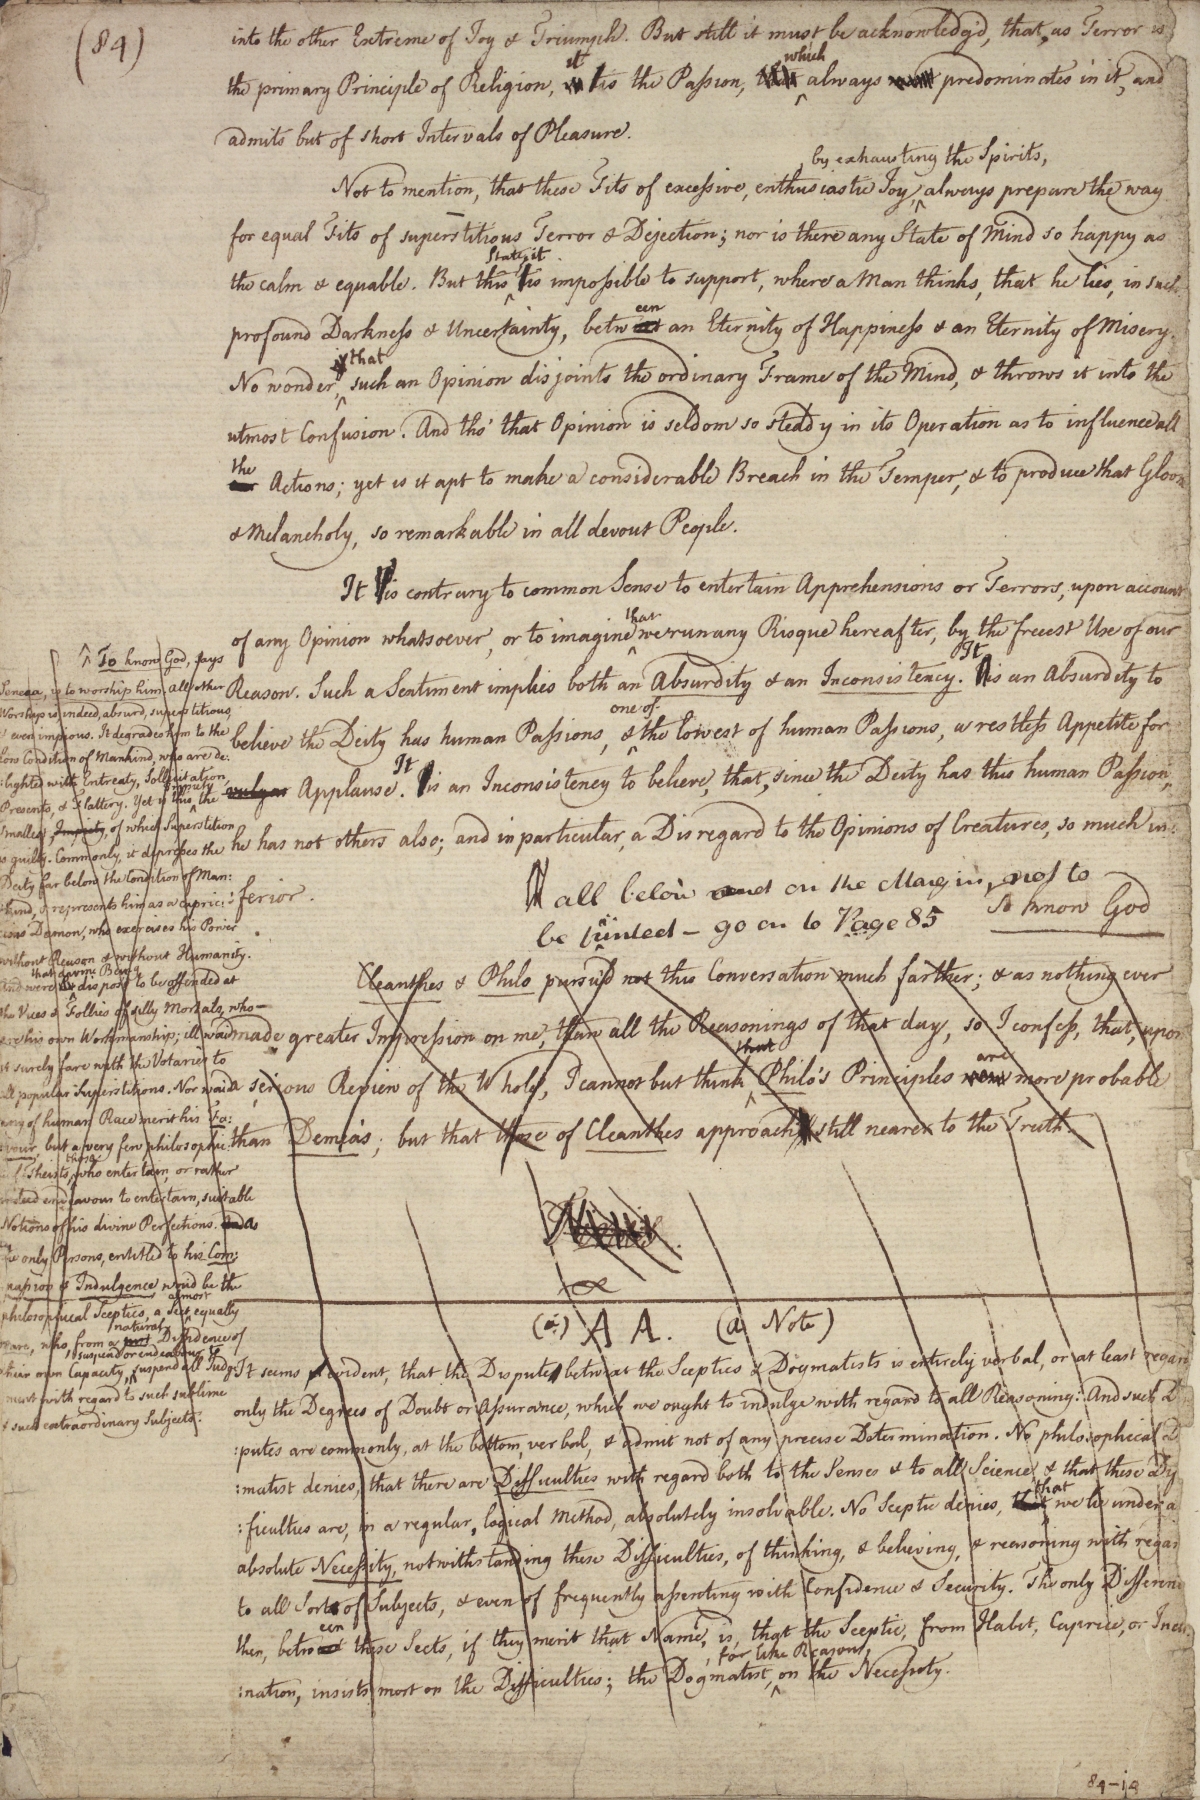 (84)
into the other Extreme of Joy & Triumph. But still it must be acknowledg'd, that, as Terror is
it which
the primary Principle of Religion, is the Passion, always predominates in it, and
admits but of short Intervals of Pleasure.
by exhausting the Spirits,
Not to mention, that these Fits of excessive, enthusiastic Joy, always prepare the way
for equal Fits of superstitious Terror & Dejection; nor is there any State of Mind so happy as
State, it
the calm & equable. But this is impossible to support, where a Man thinks, that he lies, in such
een
profound Darkness & Uncertainty, betwixt an Eternity of Happiness & an Eternity of Misery.
that
No wonder, such an Opinion disjoints the ordinary Frame of the Mind, & throws it into the
utmost Confusion. And tho' that Opinion is seldom so steddy in its Operation as to influence all
the
Actions; yet is it apt to make a considerable Breach in the Temper, & to produce that Gloom
& Melancholy, so remarkable in all devout People.
It is contrary to common Sense to entertain Apprehensions or Terrors, upon account
that
of any Opinion whatsoever, or to imagine we run any Risque hereafter, by the freest Use of our
It
Reason. Such a Sentiment implies both an Absurdity & an Inconsistency. is an Absurdity to
one of
believe the Deity has human Passions, & the lowest of human Passions, a restless Appetite for
It
vulgar Applause. is an Inconsistency to believe, that, since the Deity has this human Passion,
he has not others also; and in particular, a Disregard to the Opinions of Creatures, so much in:
:ferior.
all below and on the Margin, not to
be printed – go on to Page 85
To know God
Cleanthes & Philo pursu'd not this Conversation much farther; & as nothing ever
made greater Impression on me, than all the Reasonings of that day, so I confess, that, upon
that are
a serious Review of the Whole, I cannot but think Philo's Principles were more probable
than Demea's; but that those of Cleanthes approach still nearer to the Truth.
(a) A A. (a Note)
It seems evident, that the Dispute betwixt the Sceptics & Dogmatists is entirely verbal, or at least regards
only the Degrees of Doubt or Assurance, which we ought to indulge with regard to all Reasoning: And such
:putes are commonly, at the bottom, verbal, & admit not of any precise Determination. No philosophical
:matist denies, that there are Difficulties with regard both to the Senses & to all Science, & that these
that
:ficulties are, in a regular, logical Method, absolutely insolvable. No Sceptic denies, we lie under an
absolute Necessity, notwithstanding these Difficulties, of thinking, & believing, & reasoning with regard
to all Sorts of Subjects, & even of frequently assenting with Confidence & Security. The only Difference
een
then, betwixt these Sects, if they merit that Name, is, that the Sceptic, from Habit, Caprice, or Incli
for like Reasons,
:nation, insists most on the Difficulties; the Dogmatist, on the Necessity.
To know God, says
Seneca, is to worship him. All other
Worship is indeed, absurd, superstitious,
& even impious. It degrades him to the
low Condition of Mankind, who are de:
:lighted with Entreaty, Sollicitation,
Impiety
Presents, & Flattery. Yet is this, the
smallest Impiety, of which Superstition
is guilty. Commonly, it depresses the
Deity far below the Condition of Man:
:kind, & represents him as a caprici:
:cious Demon, who exercises his Power
without Reason & without Humanity.
that divine Being
And were dispos'd to be offended at
the Vices & Follies of silly Mortals, who
are his own Workmanship; ill wou'd
it surely fare with the Votaries to
all popular Superstitions. Nor wou'd
any of human Race merit his Fa:
:vour, but a very few philosophic:
those
:al Theists, who entertain, or rather
indeed endeavour to entertain, suitable
Notions of his divine Perfections. As
the only Persons, entitled to his Com:
:passion & Indulgence wou'd be the
almost
philosophical Sceptics, a Sect equally
natural
rare, who, from a Diffidence of
suspend or endeavour
their own Capacity, suspend all Judge
ment with regard to such sublime
& such extraordinary Subjects.
84-i9